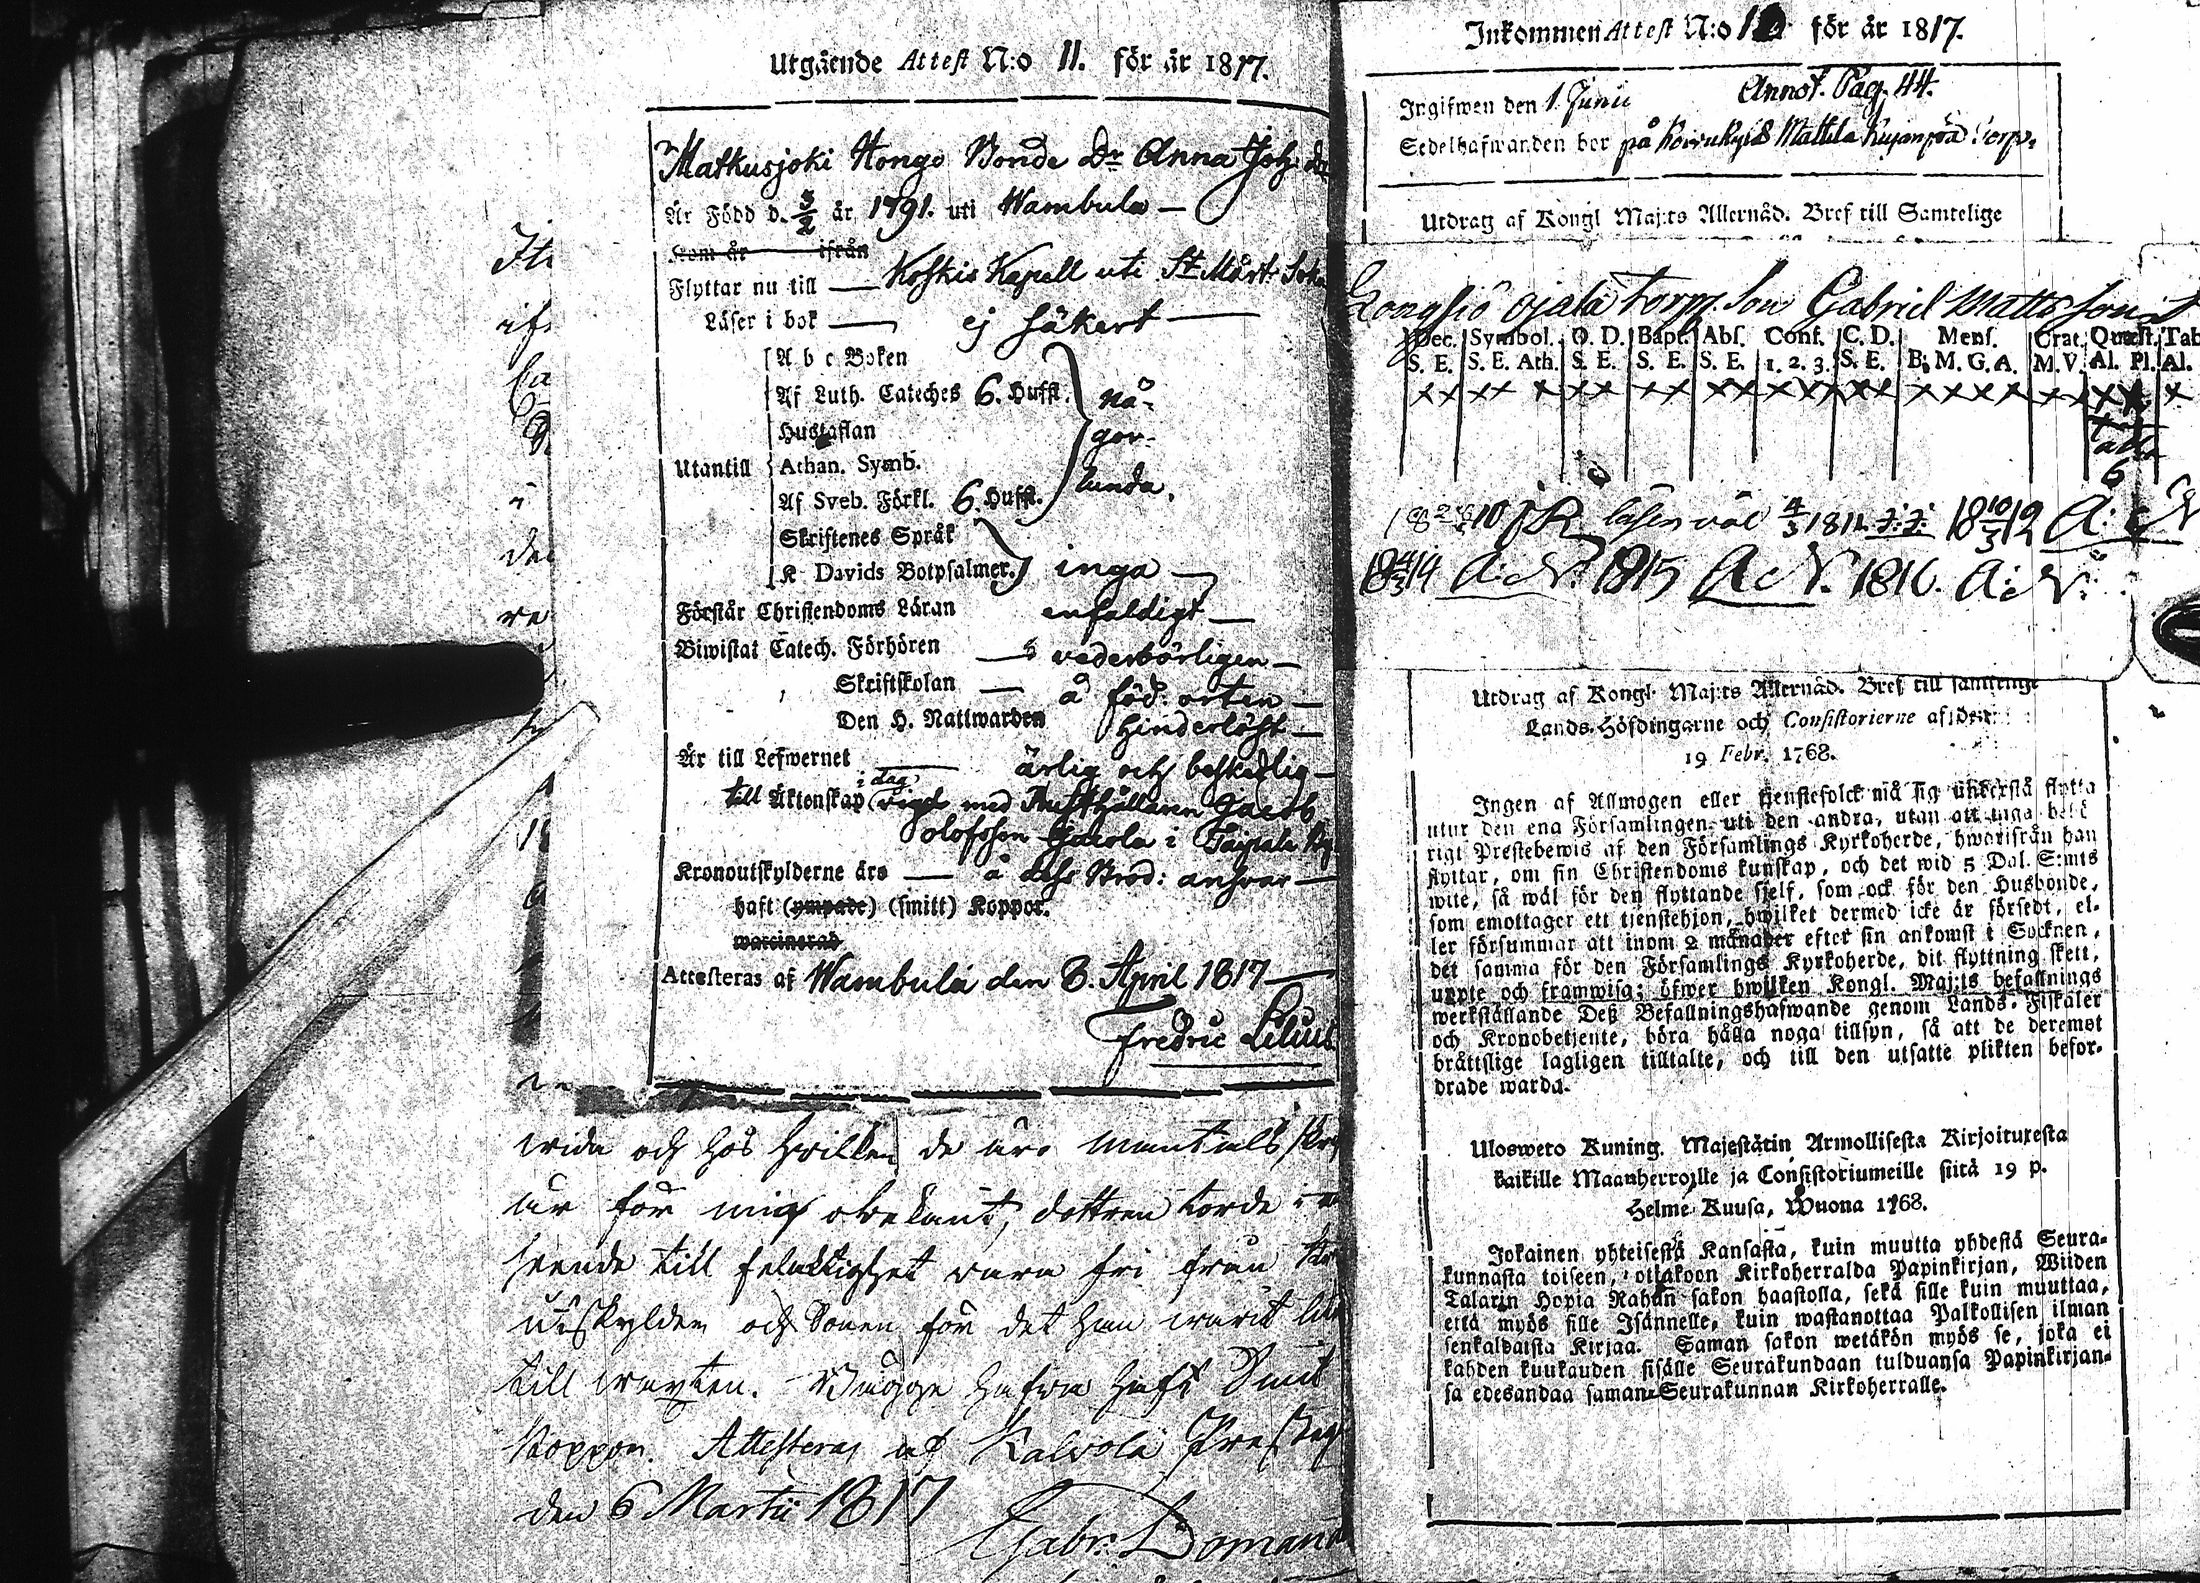 Utgående Attest N:o 11. för år 1817.
Matkusjoki Hongo Bonde Dr Anna Joh: dr
Är Född d. 3/2 år 1791. uti Wambula —
Som är ifrån
Flyttar nu till — Koskis Kapell uti St Mårt:
Läser i bok — ej säkert —
A b c Boken
Af Luth. Cateches 6. Hufst. nå-
Hustaflan gor-
Utantill Athan. Symb.
Af Sveb. Förkl. 6. Hufst. lunda.
Skriftenes Språk
K Davids Botpsalmer. inga —
Förstår Christendoms Läran enfaldigt —
Biwistat Catech. Förhören — vederbörligen —
Skriftskolan — å föd: orten —
Den H. Nattwarden Hinderlöst —
Är till Lefwernet — ärlig och beskedlig —
i dag
till Äktenskap vigd med Rusthållaren Jacob
Olofsson i Taipale By
Kronoutskylderne äro — å dess Bröd: ansvar —
haft (ympade) (smitt) Koppor.
waccinerad
Attesteras af Wambula den 8. April 1817 —
Fredric Lilius
wida och hos hwilken de äro mantals
är för mig obekant, dottren torde i
seende till felaktighet wara fri från
utskylder och Sonen för det han warit
till wexten. Bägge hafwa haft Smit
Koppor. Attesteras af Kalvola Presteg
den 6 Martii 1817
Gabr: Doman
Inkommen Attest N:o för år 1817.
Ingifwen den 1. Junii Annot. Pag. 44.
Sedelhafwanden bor på Mattila Torp.
Utdrag af Kongl Maj:ts Allernåd. Bref till Samtelige
Ojala Torp. Son Gabriel Matts Son
Dec. Symbol. O. D. Bapt. Abs. Conf. C. D. Mens. Orat. Quæst. Tab
S. E. S. E. Ath. S. E. S. E. S. E. 1. 2. 3. S. E. B. M. G. A. M. V. Al. Pl. Al.
x x x x x x x x x x x x x x x x x x x x x x x x x
6
läser väl 4/3 1811. 18 10/3 12 A: N
18 4/3 14 A: N: 1815 A N. 1816. A: N:
Utdrag af Kongl. Maj:ts Allernåd. Bref till samtelige
Lands-Höfdingarne och Consistorierne af den
19 Febr. 1768.
Ingen af Allmogen eller tjenstefolck må sig understå flytta
utur den ena Församlingen uti den andra, utan att taga behö
rigt Prestebewis af den Församlings Kyrkoherde, hwarifrån han
flyttar, om sin Christendoms kunskap, och det wid 5 Dal. S:mts
wite, så wäl för den flyttande sjelf, som ock för den Husbonde,
som emottager ett tjenstehjon, hwilket dermed icke är försedt, el-
ler försummar att inom 2 månader efter sin ankomst i Socknen,
det samma för den Församlings Kyrkoherde, dit flyttning skett,
uppte och framwisa; öfwer hwilken Kongl. Maj:ts befallnings
werkställande Deß Befallningshafwande genom Lands-Fiskaler
och Kronobetjente, böra hålla noga tillsyn, så att de deremot
bråttslige lagligen tilltalte, och till den utsatte plikten befor-
drade warda.
Ulosweto Kuning. Majestätin Armollisesta Kirjoituxesta
kaikille Maanherroille ja Consistoriumeille siitä 19 p.
Helme Kuusa, Wuona 1768.
Jokainen yhteisestä Kansasta, kuin muutta yhdestä Seura-
kunnasta toiseen, ottakoon Kirkoherralda Papinkirjan, Wiiden
Talarin Hopia Rahan sakon haastolla, sekä sille kuin muuttaa,
että myös sille Isännelle, kuin wastanottaa Palkollisen ilman
senkaldaista Kirjaa. Saman sakon wetäkön myös se, joka ei
kahden kuukauden sisälle Seurakundaan tulduansa Papinkirjan-
sa edesandaa saman Seurakunnan Kirkoherralle.